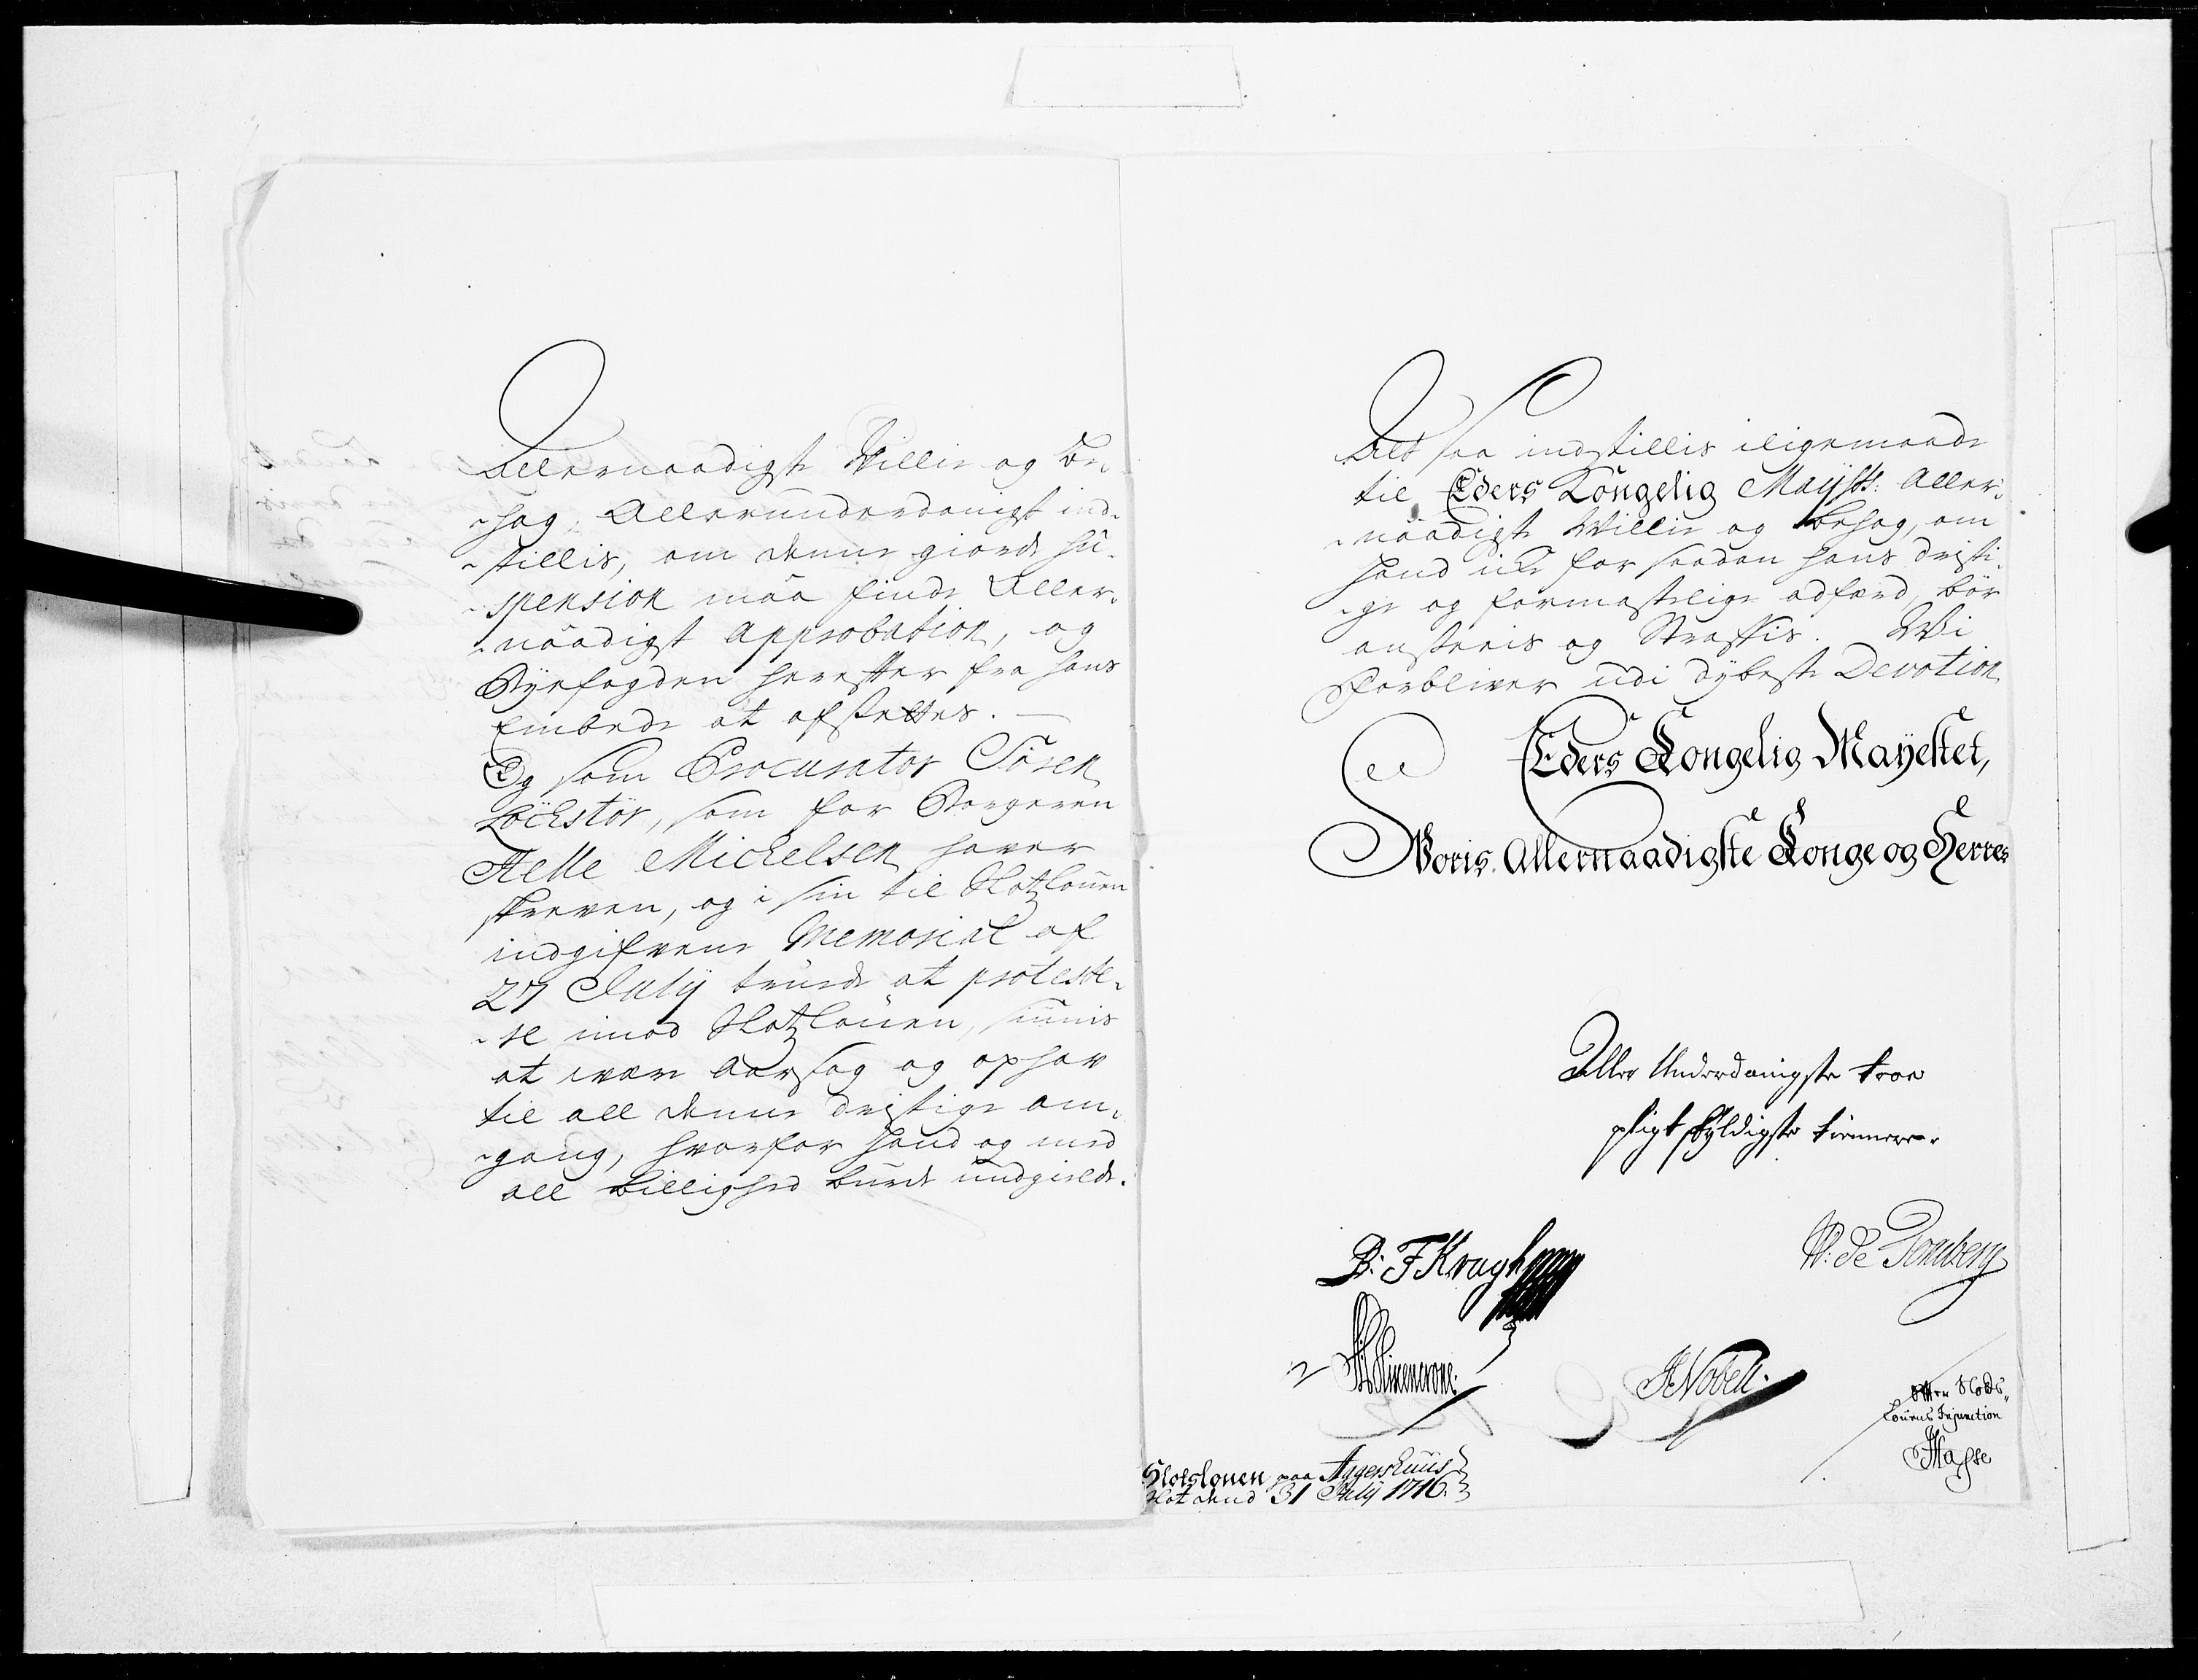 Allernaadigste Villie og be¬
¬hag, Allerunderdanigst ind¬
¬stillis, om denne giorde su¬
¬spension maa finde Aller¬
¬naadigst Approbation, og
Byefogden herefter fra hans
Embede at afsettes. —
Og som Procurator Sören
Löchstör, som for Borgeren
Helle Michelsen haver
skreven, og i sin til Slotzlouen
indgifvene Memorial af
27 July turde at proteste¬
¬re imod Slotzlouen, siunis
at være Aarsag og ophav
til all denne dristige om¬
¬gang, hvorfor hand og med
all billighed burde undgielde.
Alt saa indstillis iligemaade
til Eders Kongelig Mayst: Aller¬
¬naadigste Willie og behag, om
hand icke for saadan hans dristi¬
¬ge og formastelige adfærd, bör
ansees og Straffis. Wi
Forbliver udi dybeste Devotion
Eders Kongelig Mayestet,
Woris Allernaadigste Konge og Herres
Aller Underdanigste troe
pligt skyldigste tiennere
B: F Kragh
W: de Tonsberg
J Nobell.
Efter Slots¬
Louens Injunction
Hasse
Slotslouen paa Aggershuus
Slot dend 31 July 1716.